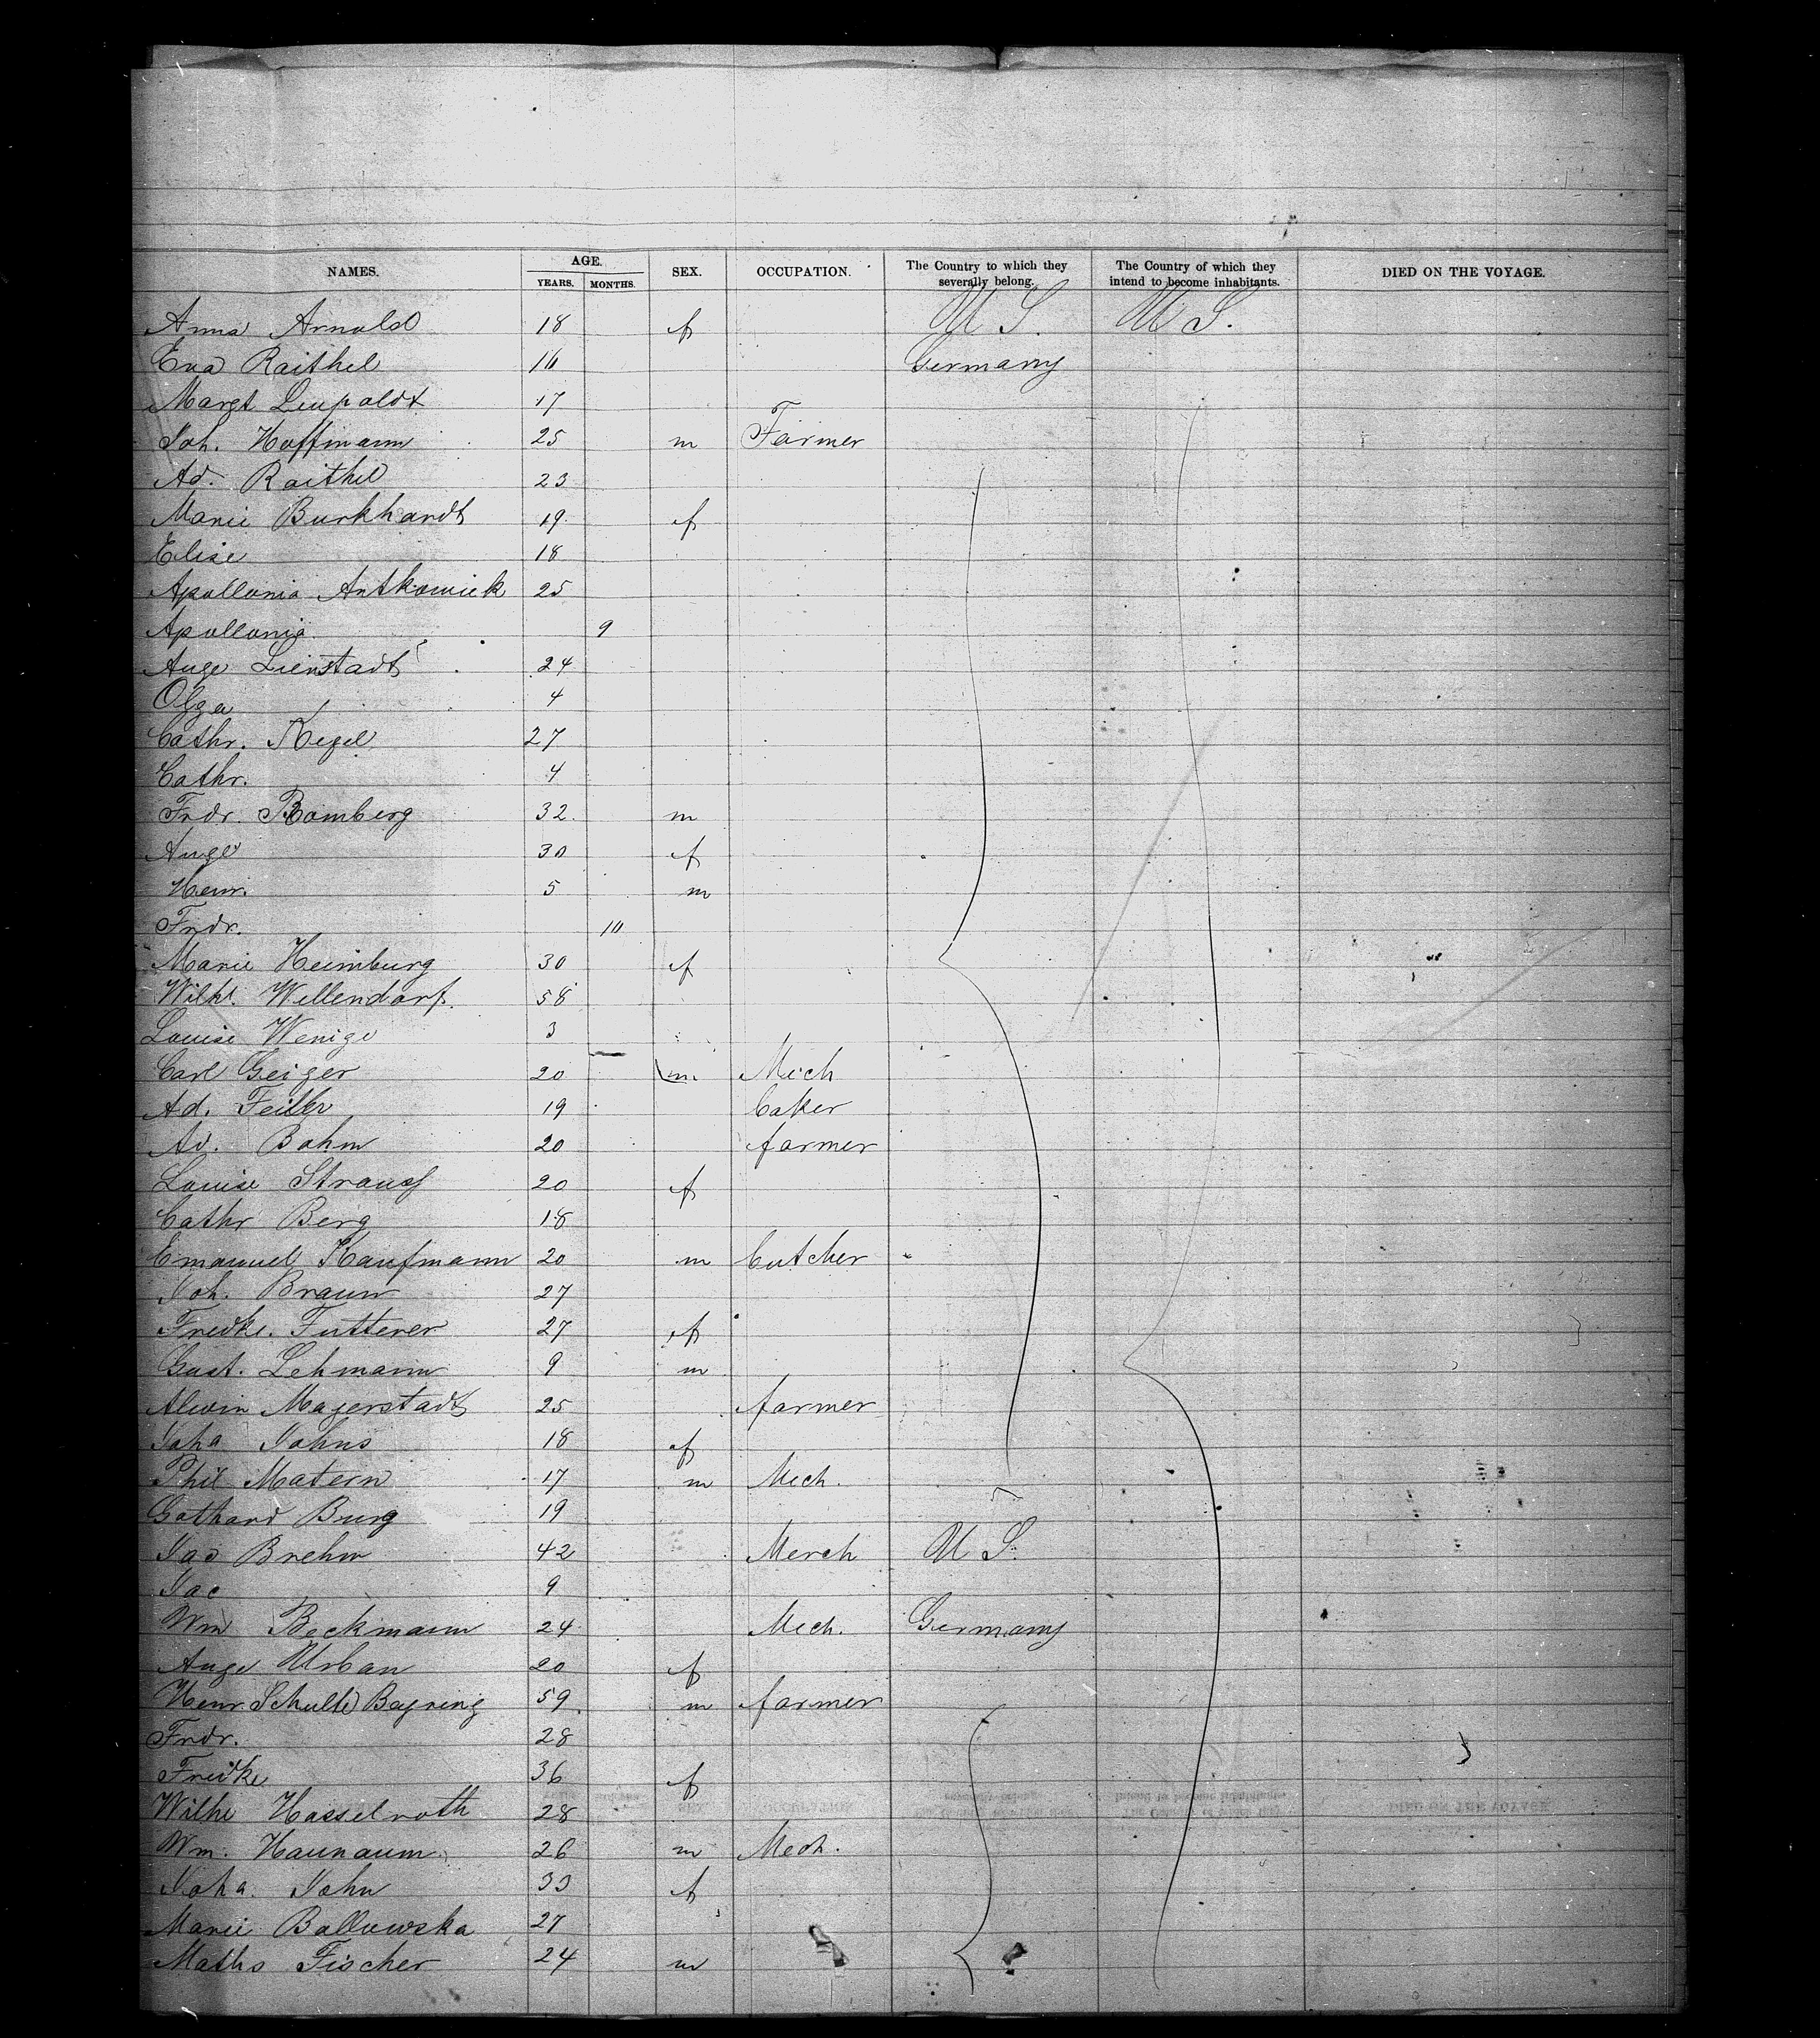 NAMES. AGE. YEARS. MONTHS. SEX. OCCUPATION. The Country to which they severally belong. The Country of which they intend to become inhabitants. DIED ON THE VOYAGE.
Anna Arnold 18 f U S. U S.
Eva Raithel 16 Germany
Margt Leupoldt 17
Joh. Hoffmann 25 m Farmer
Ad. Raithel 23
Marie Burkhardt 19 f
Elise 18
Apollonia Antkowiek 25
Apollonia 9
Auge Lienstadt 24
Olga 4
Cathr. Kegel 27
Cathr. 4
Frdr. Bamberg 32 m
Auge 30 f
Henr. 5 m
Frdr. 10
Marie Heimburg 30 f
Wilh. Wellendorf 58
Louise Wenige 3
Carl Geiger 20 m Mech
Ad. 19 baker
Ad. Bohm 20 farmer
Louise Strauss 20 f
Cathr Berg 18
Emanuel Kaufmann 20 m butcher
Joh. Braun 27
Fredke. Futterer 27 f
Gust. Lehmann 9 m
Alwin Magerstadt 25 farmer
Joha Johns 18 f
Phil Matern 17 m Mech.
Gothard Burg 19
Jac Brehm 42 Merch U S.
Jac 9
Wm Beckmann 24 Mech. Germany
Auge Urban 20 f
Henr. Schulte 59 m farmer
Frdr. 28
Fredke 36 f
Wilhe Hasselroth 28
Wm. Haunaum 26 m Mech.
Joha. John 33 f
Marie Ballowska 27
Maths Fischer 24 m